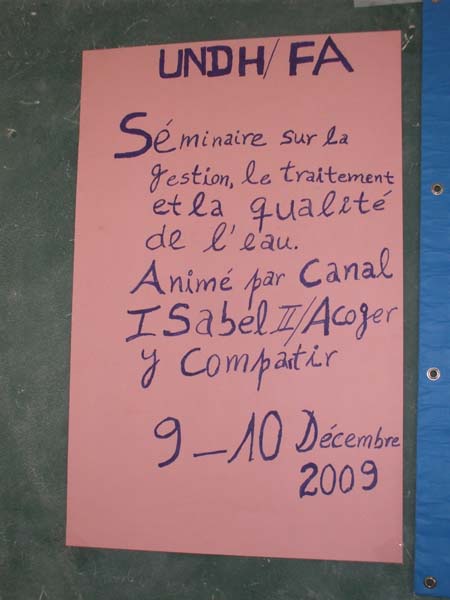 UNDH/FA
Séminaire sur la
gestion, le traitement
et la qualité
de l'eau.
Animé par Canal
ISabel II/Acoger
y Compartir
9-10 Décembre
2009